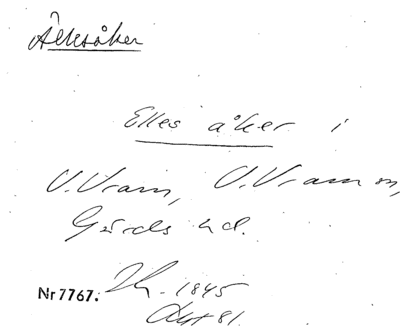 Ällesåker
Elles åker i
V. Vram, V. Vram sn,
Gärds hd.
Nr 7767. 1845
81.